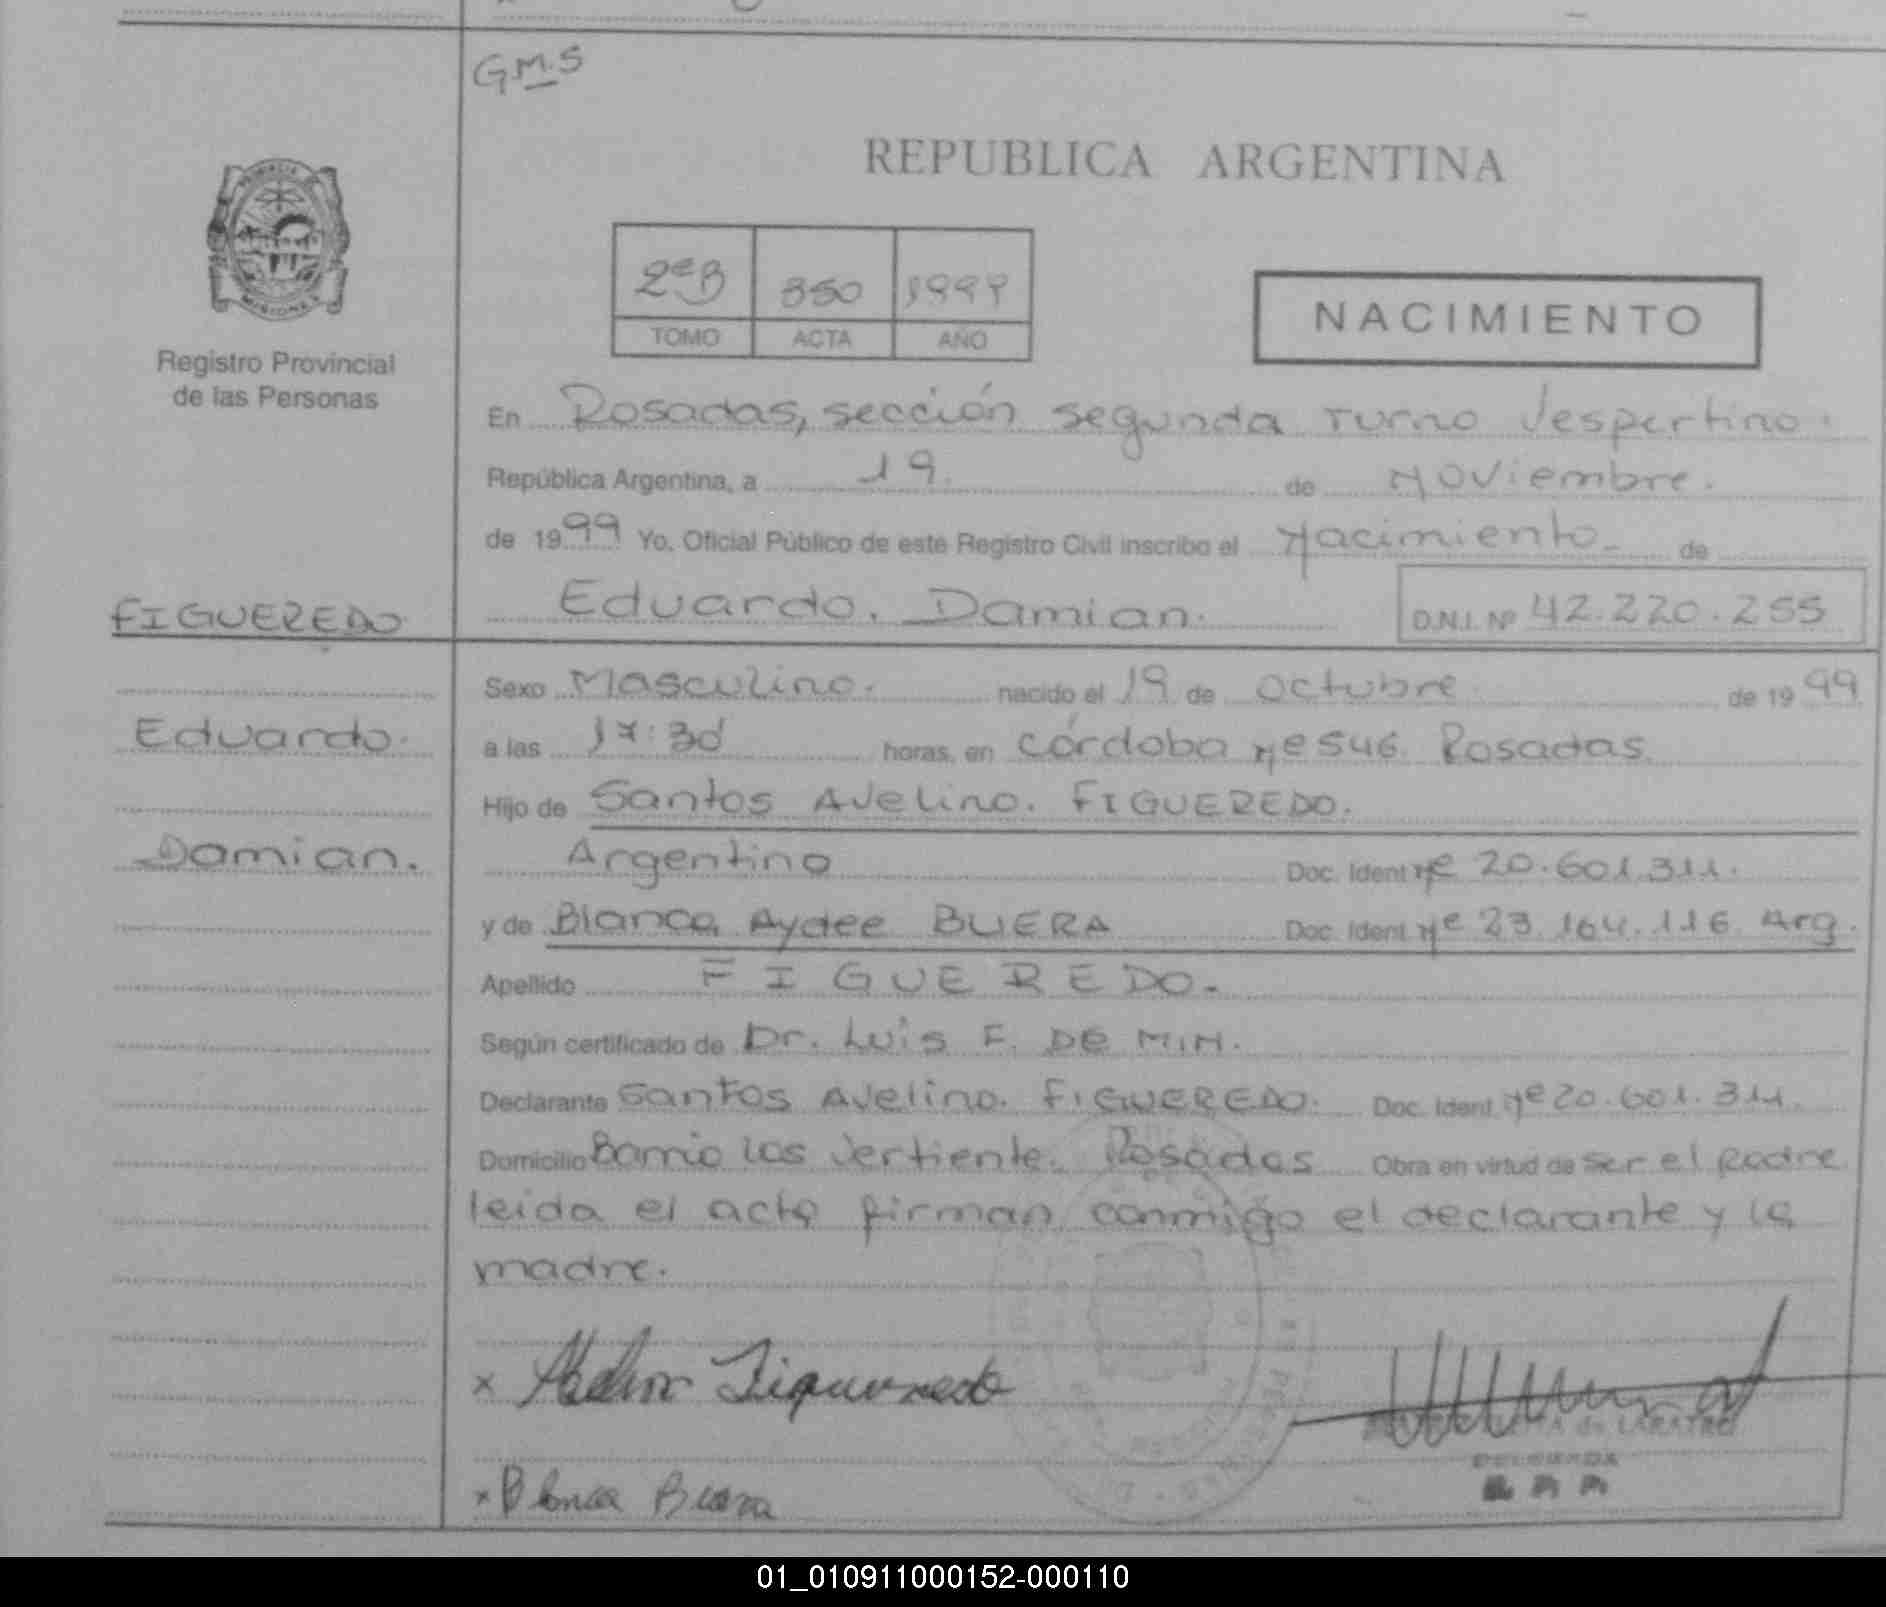 G.M.S
REPUBLICA ARGENTINA
2ºB 350 1999
TOMO ACTA AÑO
NACIMIENTO
Registro Provincial
de las Personas
En Posadas, sección segunda Turno Vespertino.
República Argentina, a 19 de Noviembre.
de 1999 Yo, Oficial Público de este Registro Civil inscribo el Nacimiento de
FIGUEREDO
Eduardo. Damian. D.N.I. Nº 42.220.255
Sexo Masculino. nacido el 19 de Octubre de 1999
Eduardo.
a las 17:30 horas, en córdoba Nº 546 Posadas.
Hijo de Santos Avelino. FIGUEREDO.
Damian.
Argentino Doc. Ident Nº 20.601.311.
y de Blanca Aydee BUERA Doc. Ident Nº 23.164.116 Arg.
Apellido FIGUEREDO.
Según certificado de Dr. Luis F. DE MIN.
Declarante Santos Avelino. FIGUEREDO. Doc. Ident Nº 20.601.311.
Domicilio Barrio las Vertiente. Posadas Obra en virtud de ser el padre
leida el acta firman conmigo el declarante y la
madre.
x Figueredo
de LABATRO
DELEGADA
x Blanca Buera
01_010911000152-000110